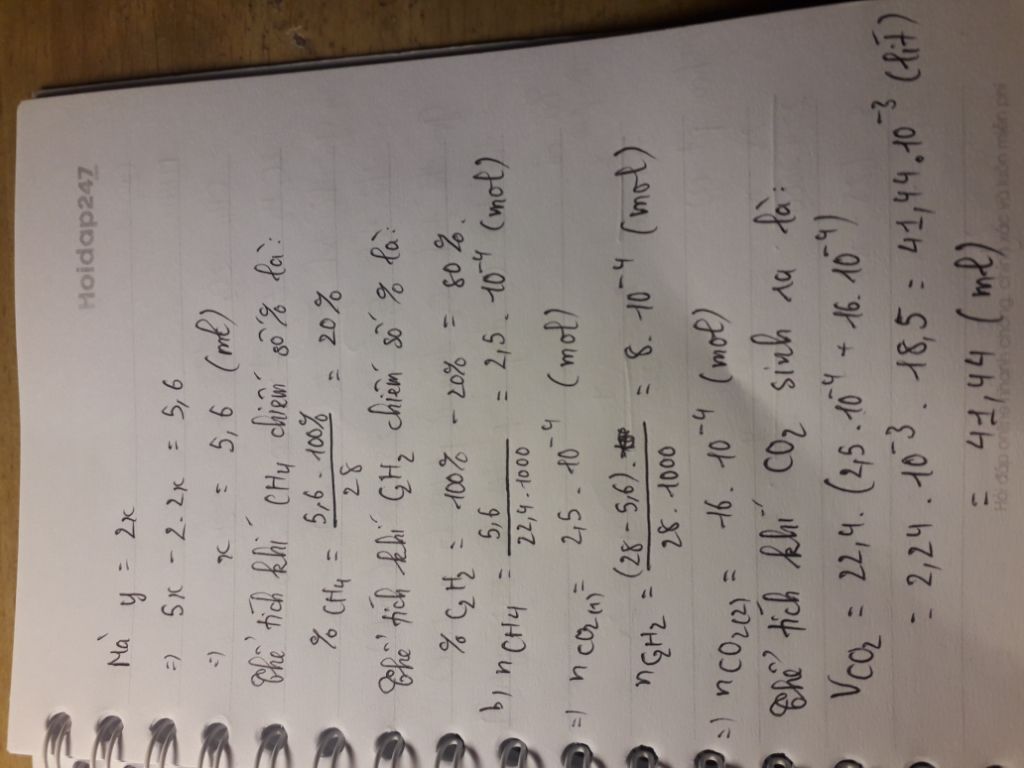 Hoidap247
Mà y = 2x
=) 5x - 2.2x = 5,6
=) x = 5,6 (ml)
Thể tích khí CH4 chiếm số % là:
% CH4 = 5,6 . 100% / 28 = 20%
Thể tích khí C2H2 chiếm số % là:
% C2H2 = 100% - 20% = 80%
b) nCH4 = 5,6 / 22,4 . 1000 = 2,5 . 10⁻⁴ (mol)
=) nCO2(1) = 2,5 . 10⁻⁴ (mol)
nC2H2 = (28 - 5,6) . / 28 . 1000 = 8 . 10⁻⁴ (mol)
=) nCO2(2) = 16 . 10⁻⁴ (mol)
Thể tích khí CO2 sinh ra là:
VCO2 = 22,4 . (2,5 . 10⁻⁴ + 16 . 10⁻⁴)
= 2,24 . 10⁻³ . 18,5 = 41,44 . 10⁻³ (lít)
= 41,44 (ml)